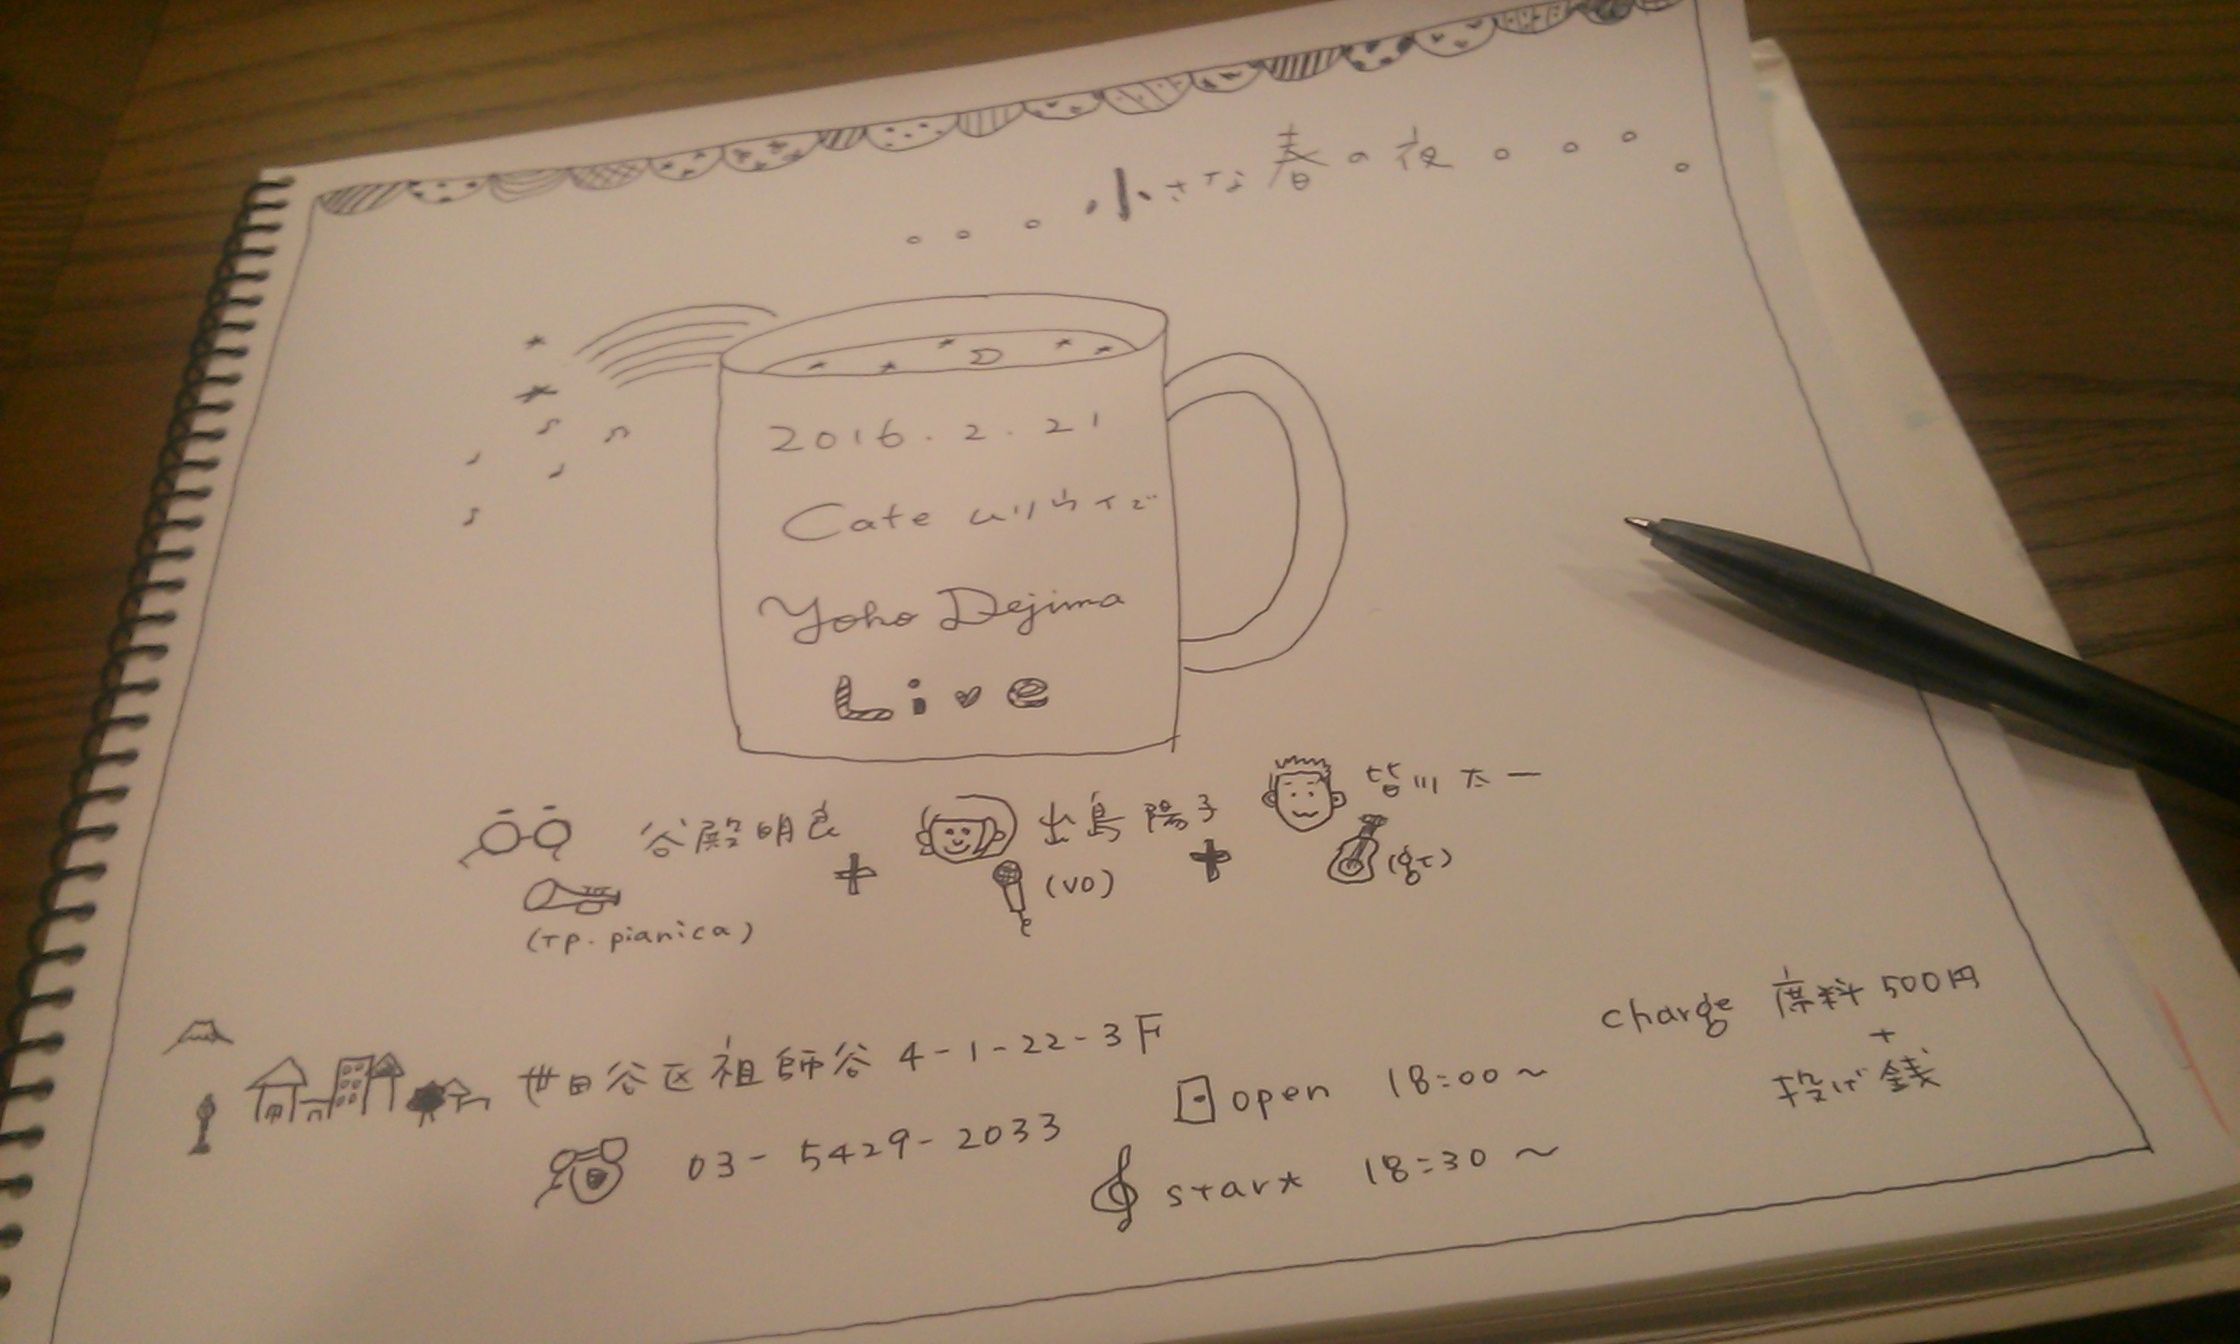 小さな春の夜
2016.2.21
Cafe ムリウイで
Yoko Dejima
Live
谷殿明良 + 出島陽子 + 皆川太一
(Tp. pianica) (vo) (gt)
世田谷区祖師谷 4-1-22-3F
03-5429-2033
open 18:00〜
start 18:30〜
charge 席料500円
+
投げ銭